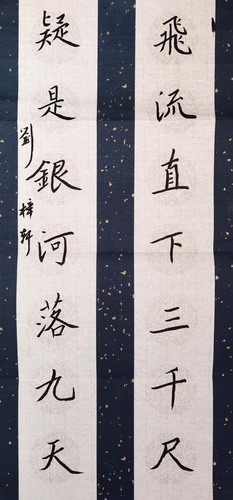 飛流直下三千尺
疑是銀河落九天
劉梓軒